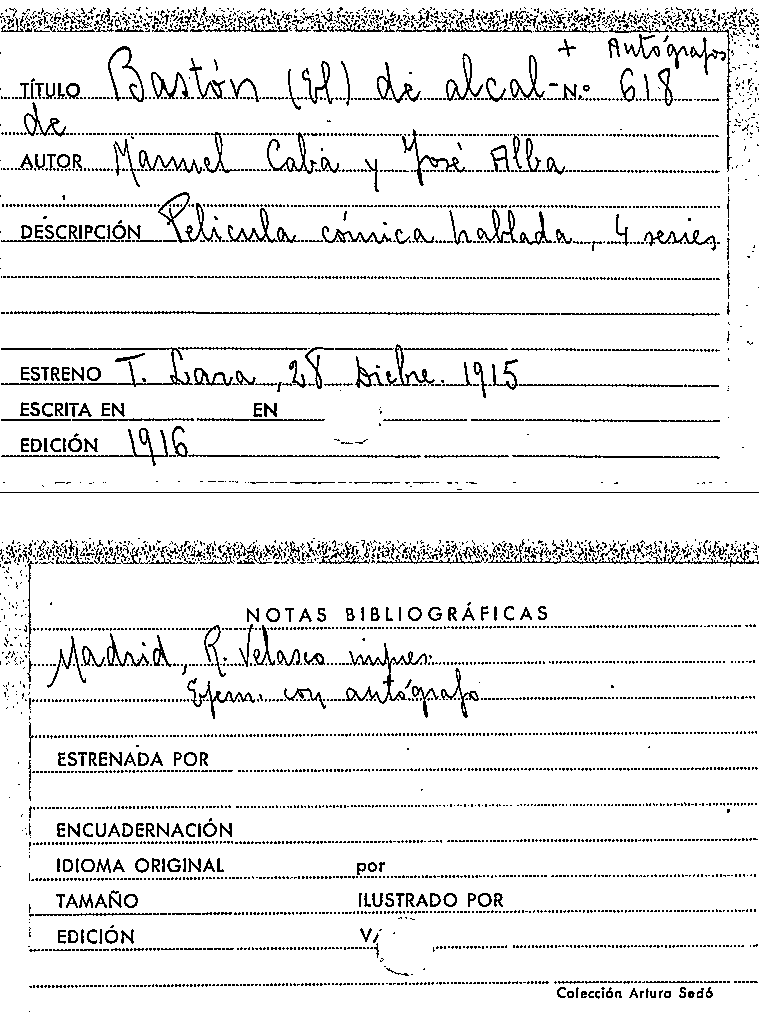 + Autógrafos
TÍTULO Bastón (El) de alcal- N.º 618
de
AUTOR Manuel Caba y José Alba
DESCRIPCIÓN Pelicula cómica hablada, 4 series
ESTRENO T. Lara, 28 Dicbre. 1915
ESCRITA EN EN
EDICIÓN 1916
NOTAS BIBLIOGRÁFICAS
Madrid, R. Velasco impres.
Ejem. con autógrafo
ESTRENADA POR
ENCUADERNACIÓN
IDIOMA ORIGINAL por
TAMAÑO ILUSTRADO POR
EDICIÓN V/
Colección Arturo Sedó